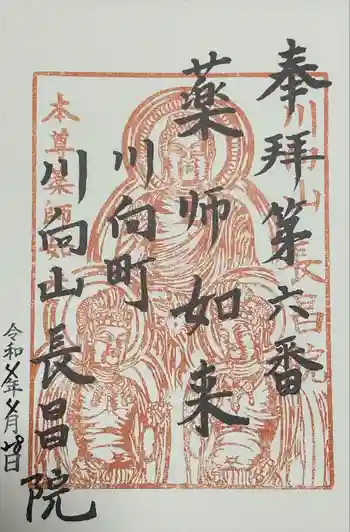 奉拝第六番
川向山長昌院
薬師如来
川向町
川向山長昌院
本尊薬師如